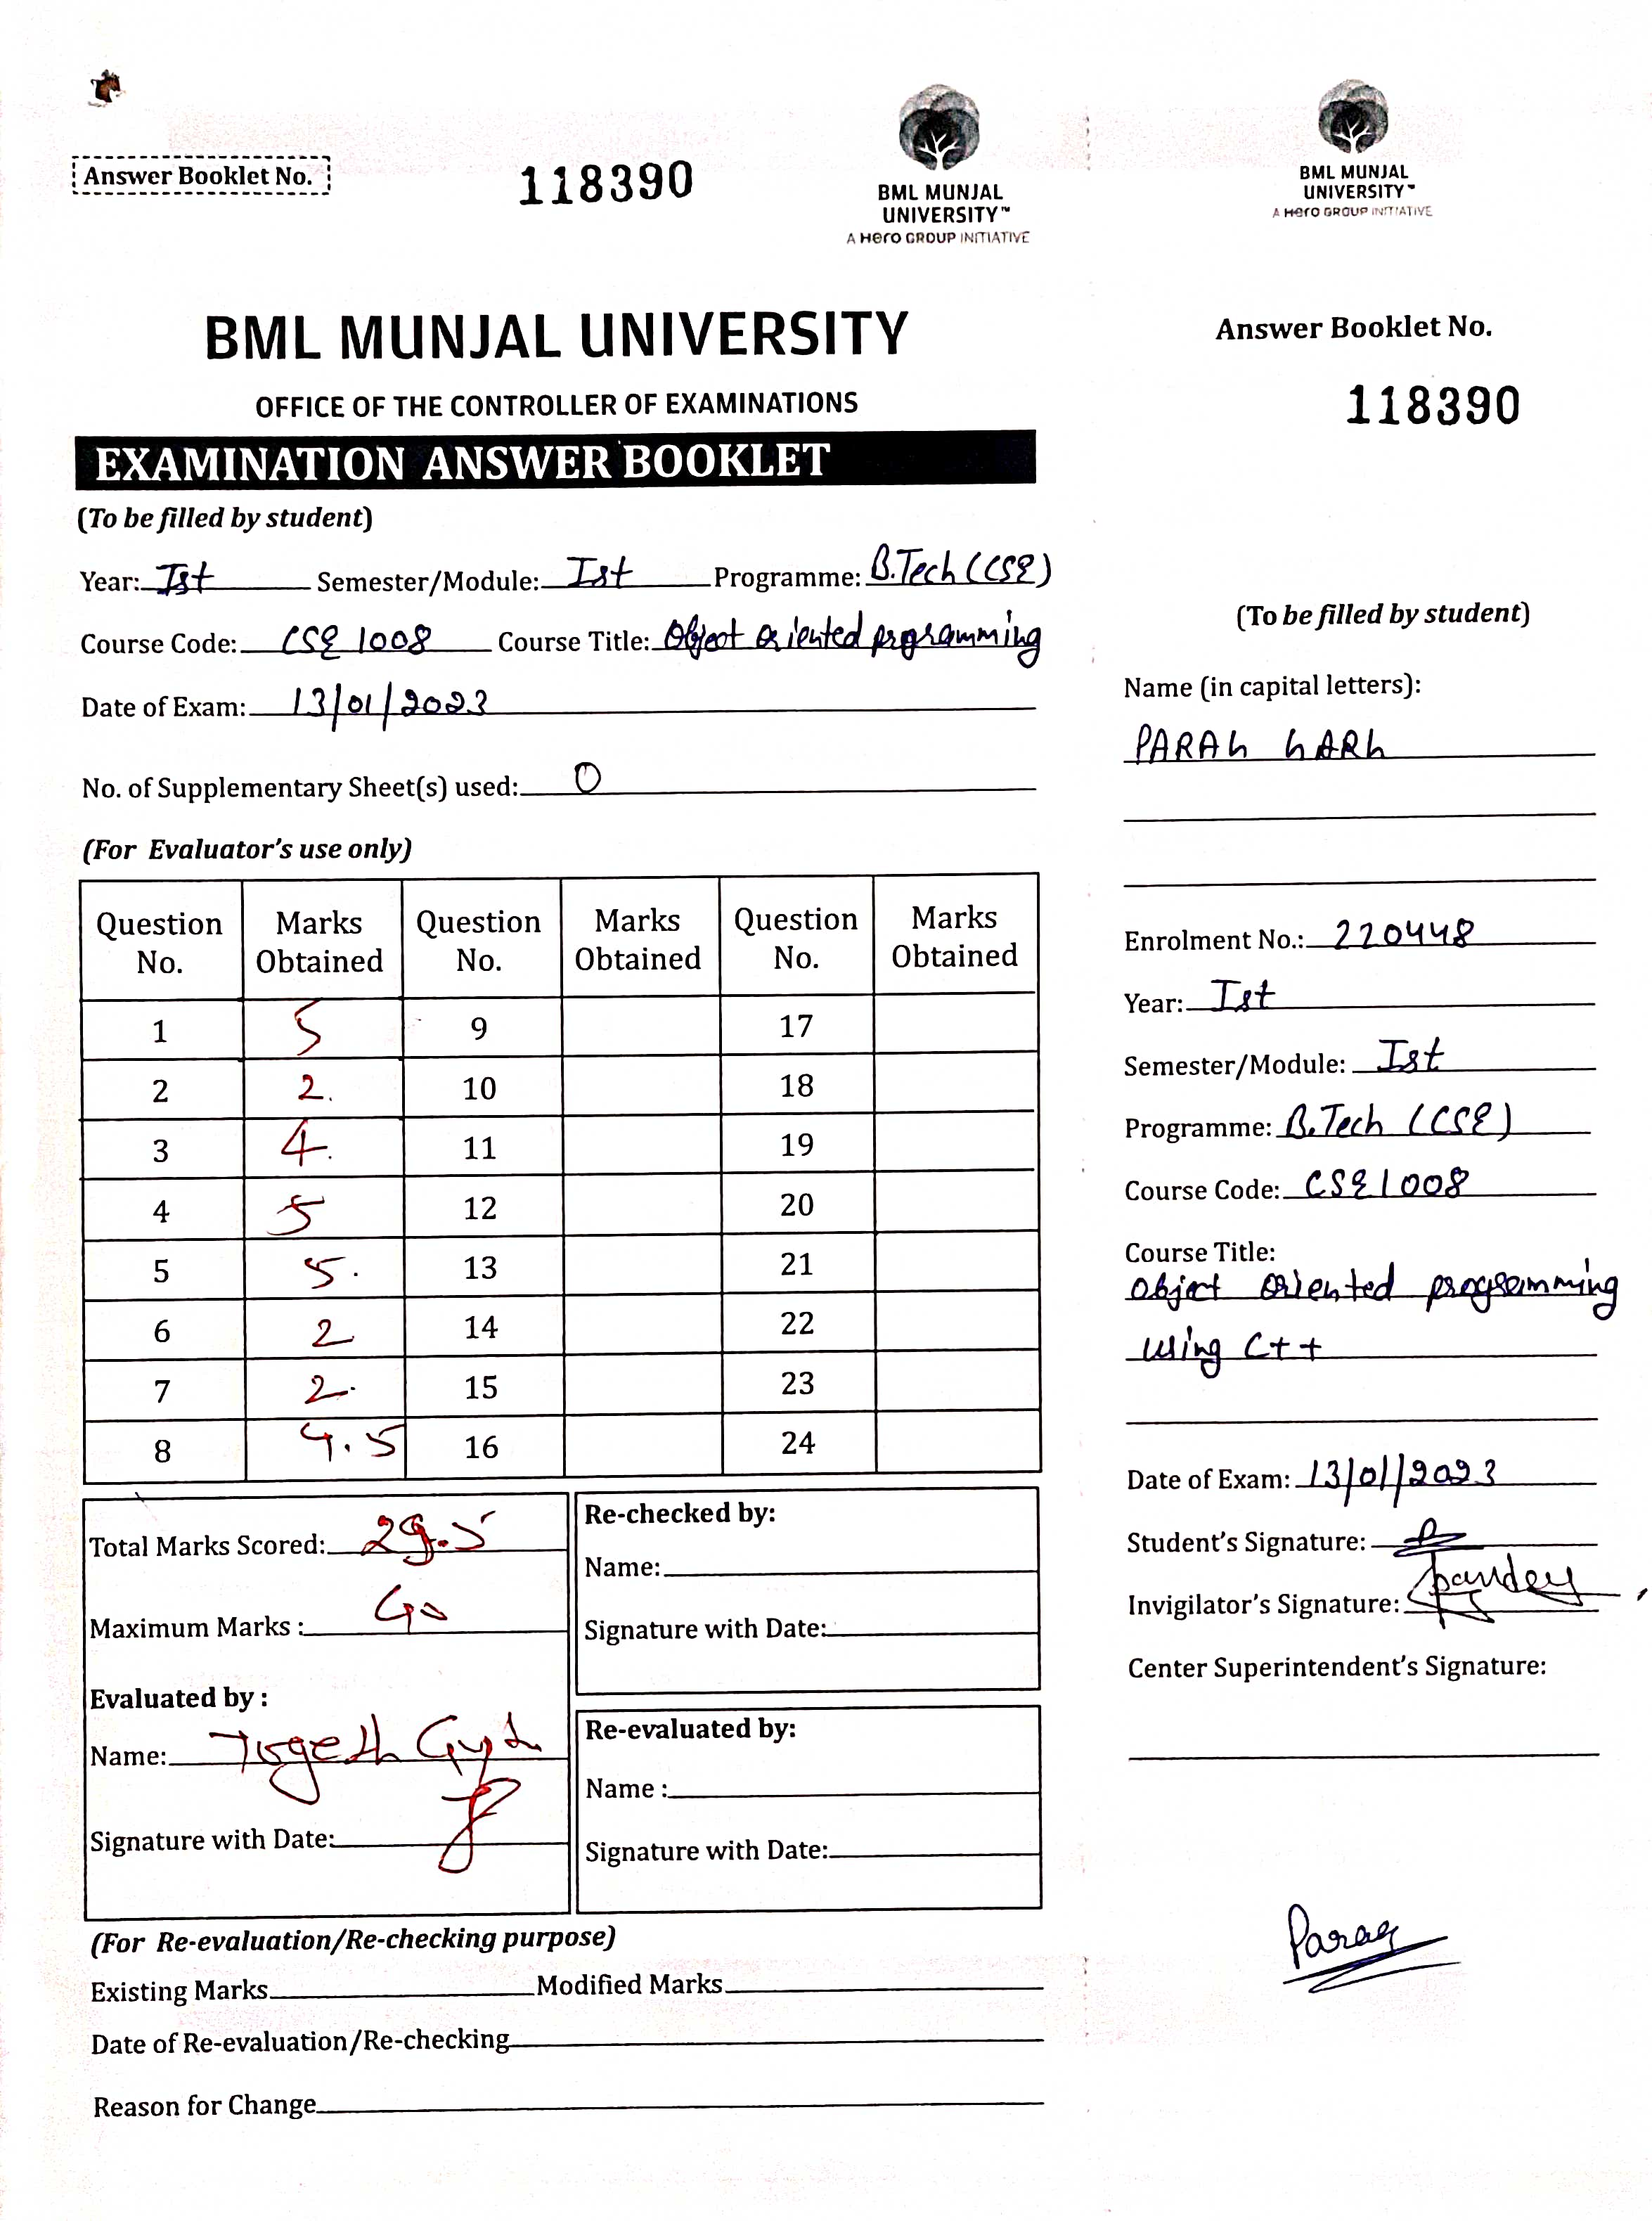 Answer Booklet No.
118390
BML MUNJAL
UNIVERSITY™
A Hero GROUP INITIATIVE
BML MUNJAL UNIVERSITY
OFFICE OF THE CONTROLLER OF EXAMINATIONS
EXAMINATION ANSWER BOOKLET
(To be filled by student)
Year: Ist Semester/Module: Ist Programme: B.Tech (CSE)
Course Code: CSE 1008 Course Title: Object Oriented programming
Date of Exam: 13/01/2023
No. of Supplementary Sheet(s) used: 0
(For Evaluator's use only)
Question No. Marks Obtained Question No. Marks Obtained Question No. Marks Obtained
1 5 9 17
2 2. 10 18
3 4. 11 19
4 5 12 20
5 5. 13 21
6 2 14 22
7 2. 15 23
8 4.5 16 24
Total Marks Scored: 29.5
Maximum Marks : 40
Evaluated by :
Name:
Signature with Date:
Re-checked by:
Name:
Signature with Date:
Re-evaluated by:
Name :
Signature with Date:
(For Re-evaluation/Re-checking purpose)
Existing Marks Modified Marks
Date of Re-evaluation/Re-checking
Reason for Change
BML MUNJAL
UNIVERSITY™
A Hero GROUP INITIATIVE
Answer Booklet No.
118390
(To be filled by student)
Name (in capital letters):
PARAG GARG
Enrolment No.: 220448
Year: Ist
Semester/Module: Ist
Programme: B.Tech (CSE)
Course Code: CSE1008
Course Title:
Object Oriented programming
using C++
Date of Exam: 13/01/2023
Student's Signature:
Invigilator's Signature:
Center Superintendent's Signature:
Parag